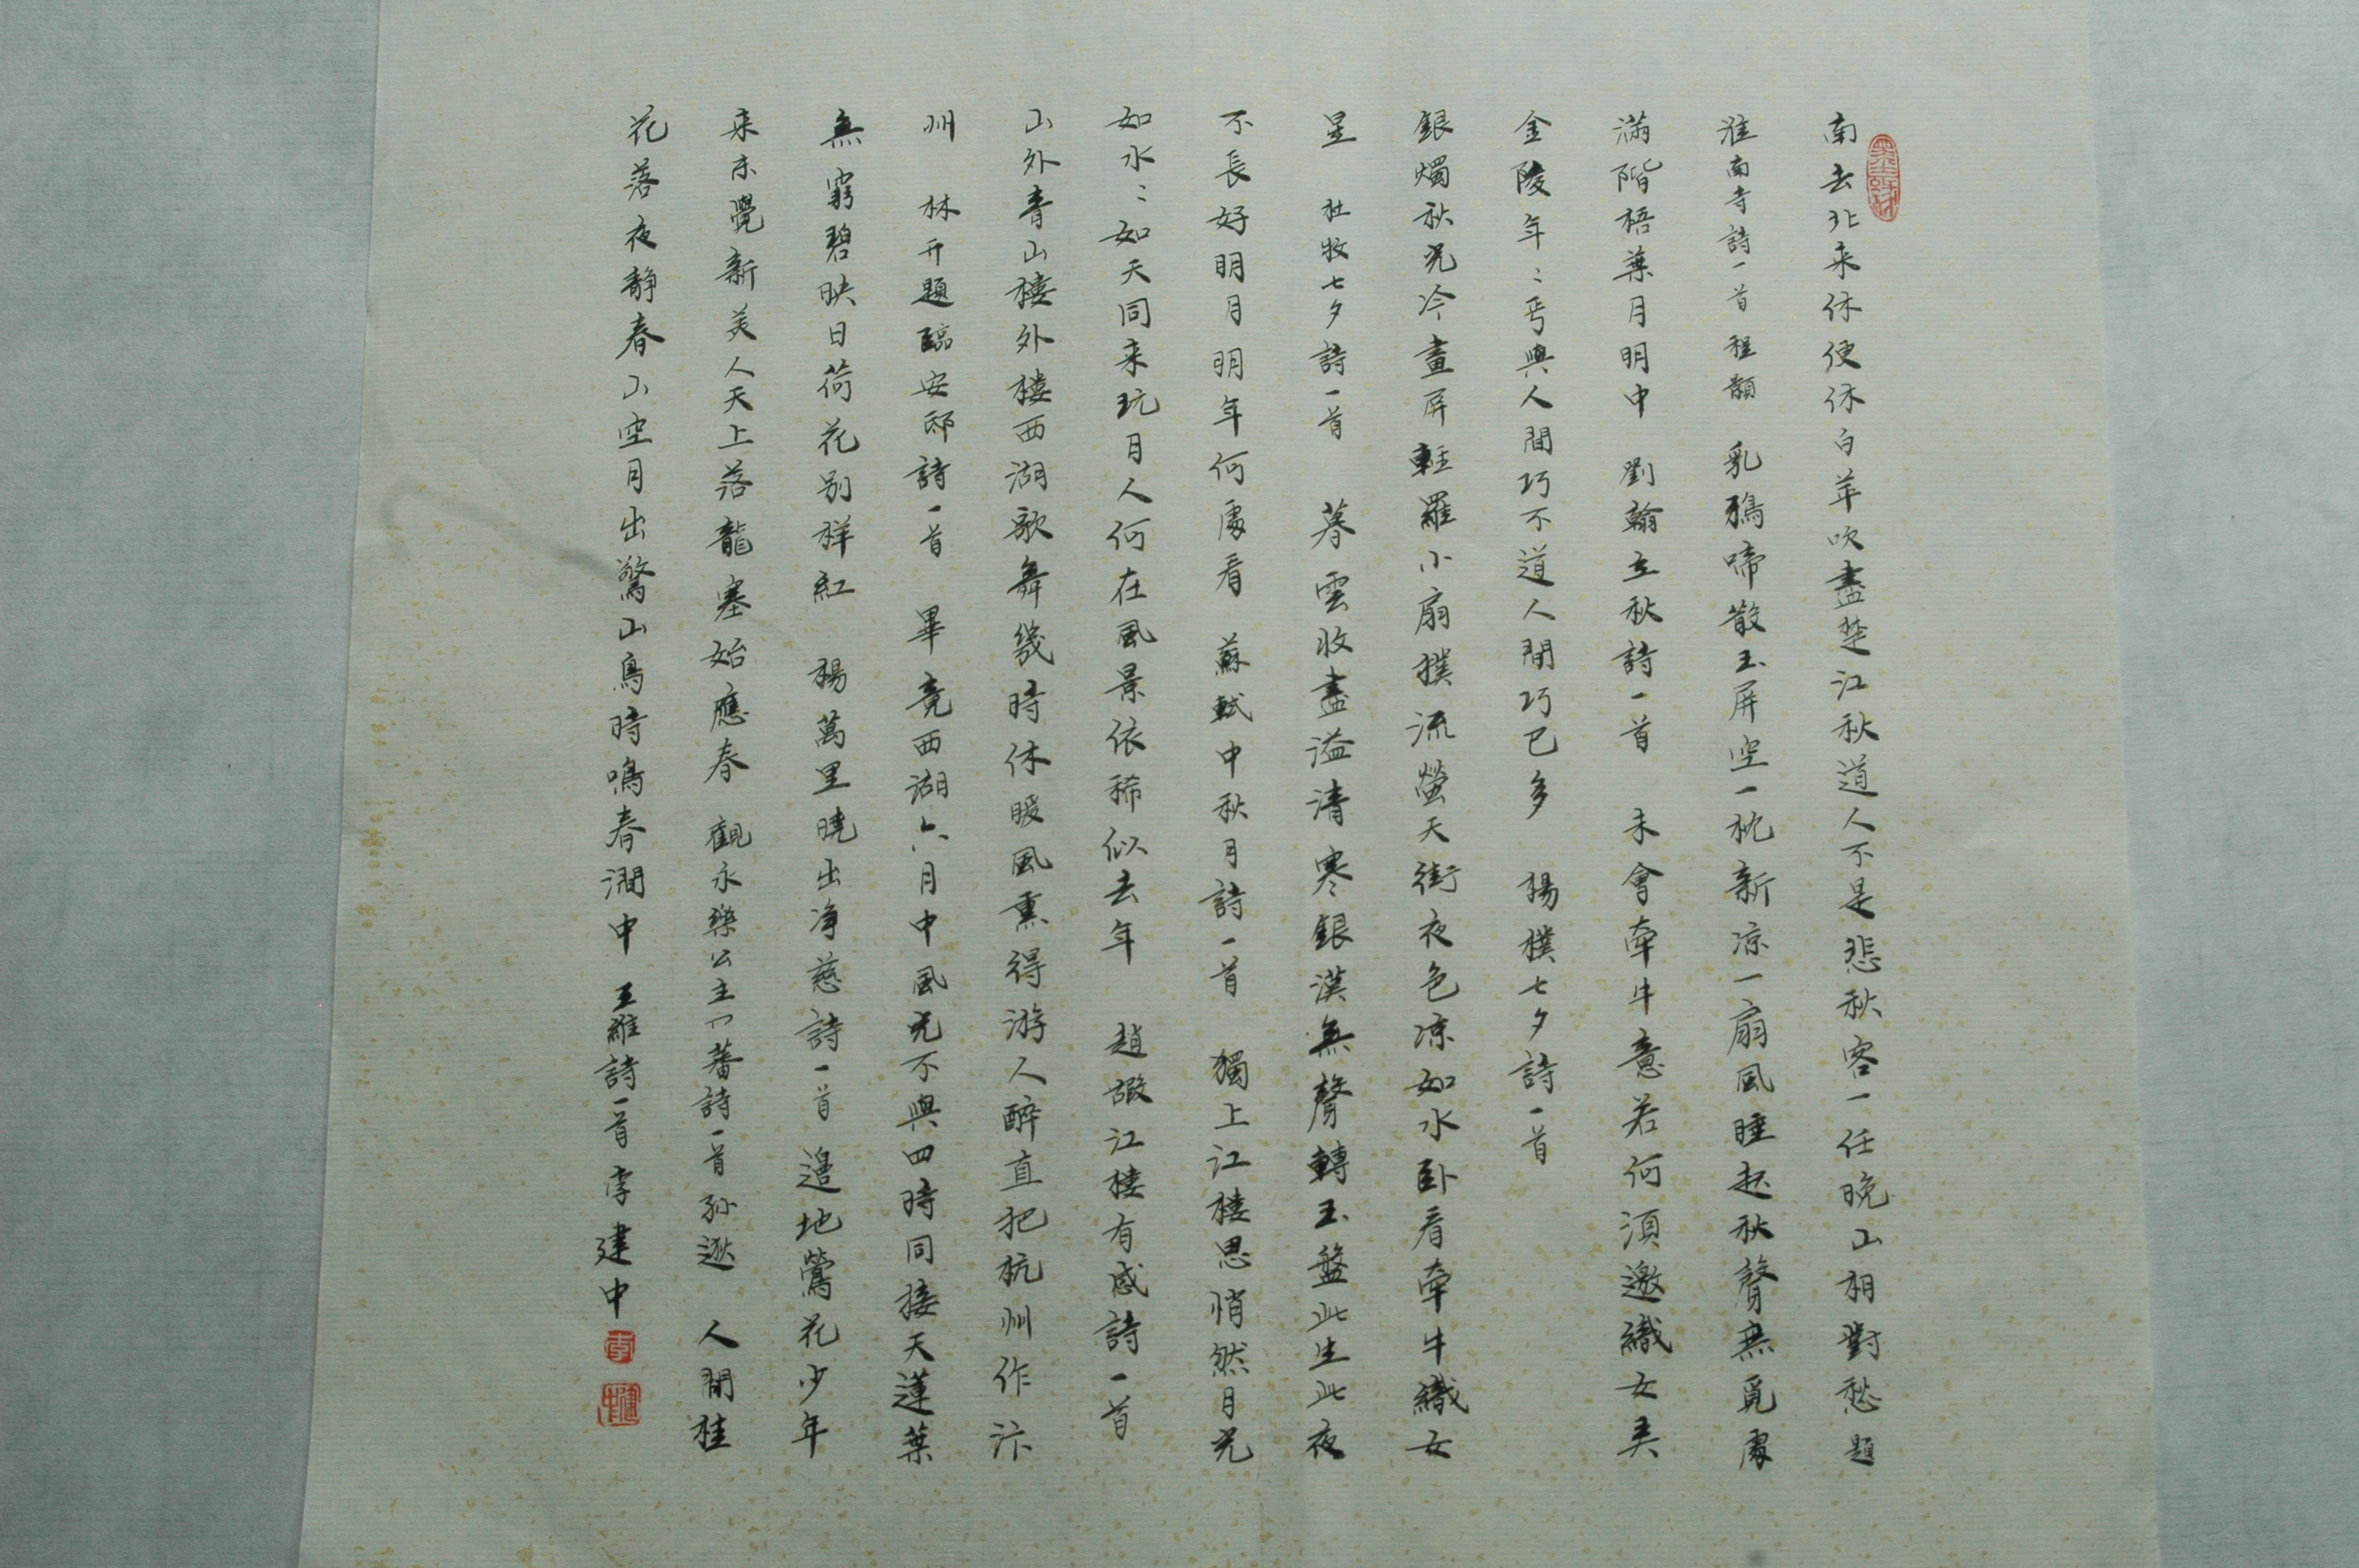 南去北来休便休白苹吹盡楚江秋道人不是悲秋客一任晚山相對愁題
淮南寺詩一首程顥 乳鴉啼散玉屏空一枕新凉一扇風睡起秋聲無覓處
滿階梧葉月明中 劉翰立秋詩一首 未會牽牛意若何須邀織女弄
金陵年〻丐與人間巧不道人間巧已多 楊樸七夕詩一首
銀燭秋光冷畫屏輕羅小扇撲流螢天街夜色凉如水卧看牽牛織女
星 杜牧七夕詩一首 暮雲收盡溢清寒銀漢無聲轉玉盤此生此夜
不長好明月明年何處看 蘇軾中秋月詩一首 獨上江樓思悄然月光
如水〻如天同来玩月人何在風景依稀似去年 趙嘏江樓有感詩一首
山外青山樓外樓西湖歌舞幾時休暖風熏得游人醉直把杭州作汴
州 林升題臨安邸詩一首 畢竟西湖六月中風光不與四時同接天蓮葉
無窮碧映日荷花别樣紅 楊萬里曉出净慈詩一首 邊地鶯花少年
来未覺新美人天上落龍塞始應春 觀永樂公主入蕃詩一首孫逖 人間桂
花落夜静春山空月出驚山鳥時鳴春澗中 王維詩一首李建中
李
建中